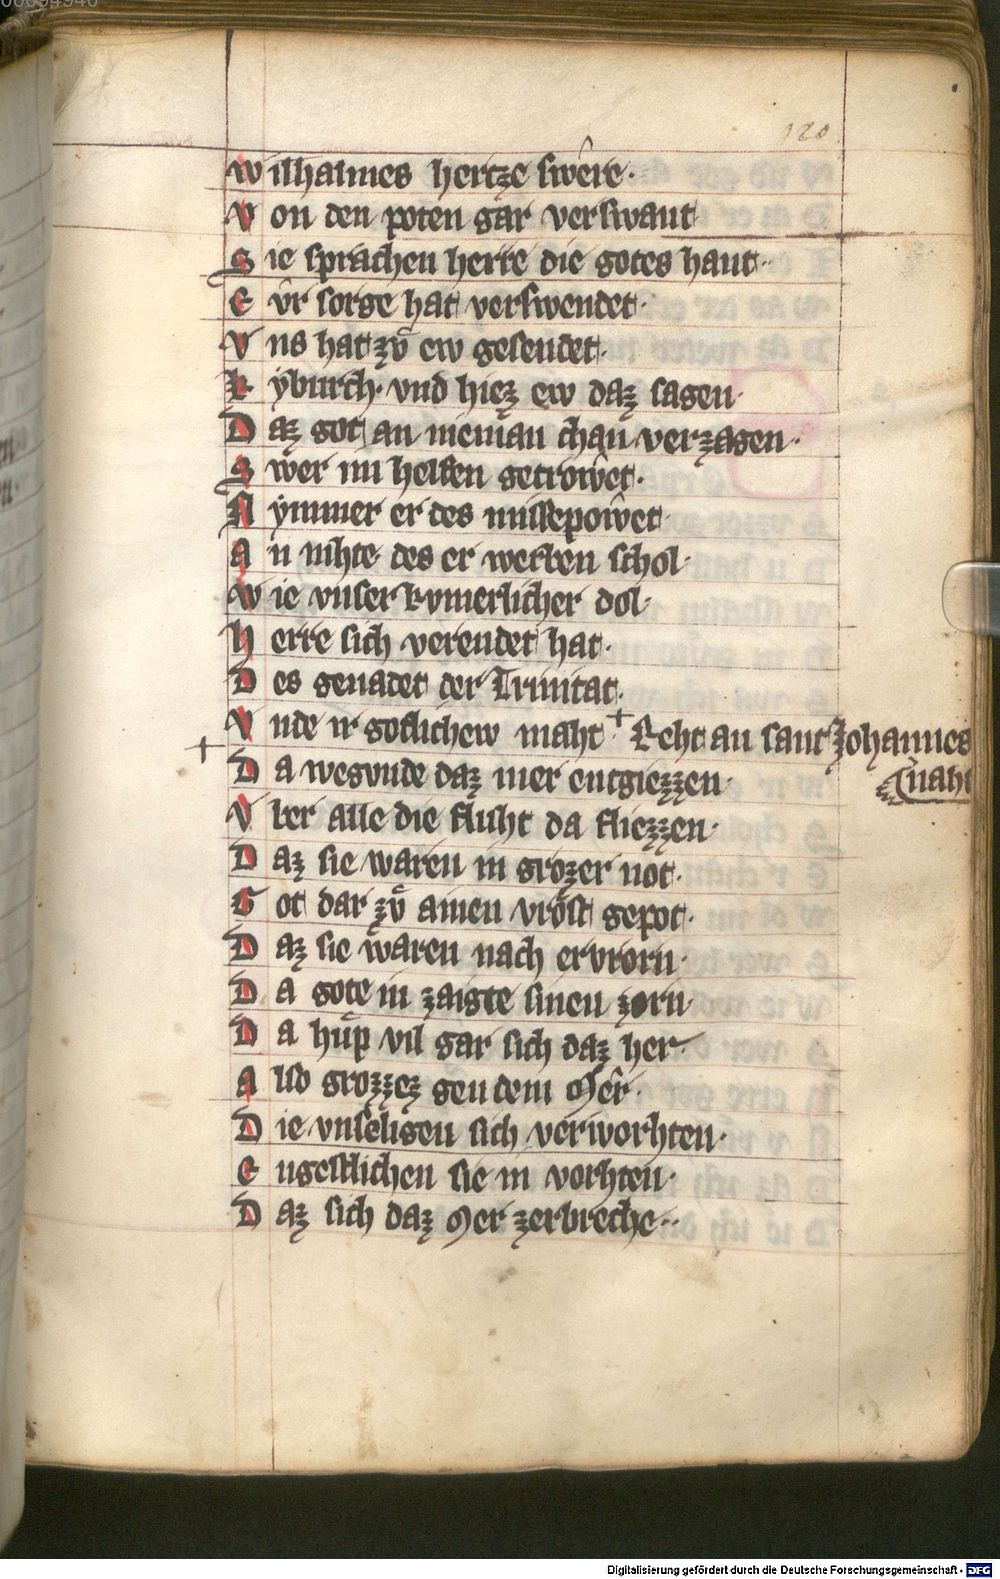 120
Wilhalmes hertze swêre·
Von den poten gar verswant
Sie sprachen herre die gotes hant·
Evͤr sorge hat verswendet·
Vns hat zvͦ ew gesendet·
Kyburch· vnd hiez ew daz sagen·
Daz got an nieman chan verzagen·
Swer im helfen getrowet·
Nymmer er des missepowet·
An nihte des er werben schol·
Wie vnser kvmerlicher dol·
Herre sich verendet hat·
Des genadet der Trinitat·
Vnde ir gotlichew maht + Reht an sant Johannes
naht
+
Da wegvnde daz mer entgiezzen·
Vber alle die fluht da fliezzen·
Daz sie waren in grozer not·
Got dar zvͦ ainen vrost gepot·
Daz sie waren nach ervrorn·
Da gote in zaigte sinen zorn·
Da hůp vil gar sich daz her·
Also grozzez gen dem Mêr·
Die vnseligen sich verworhten·
Engestlichen sie in vorhten·
Daz sich daz Mer zerbreche··
Digitalisierung gefördert durch die Deutsche Forschungsgemeinschaft - DFG